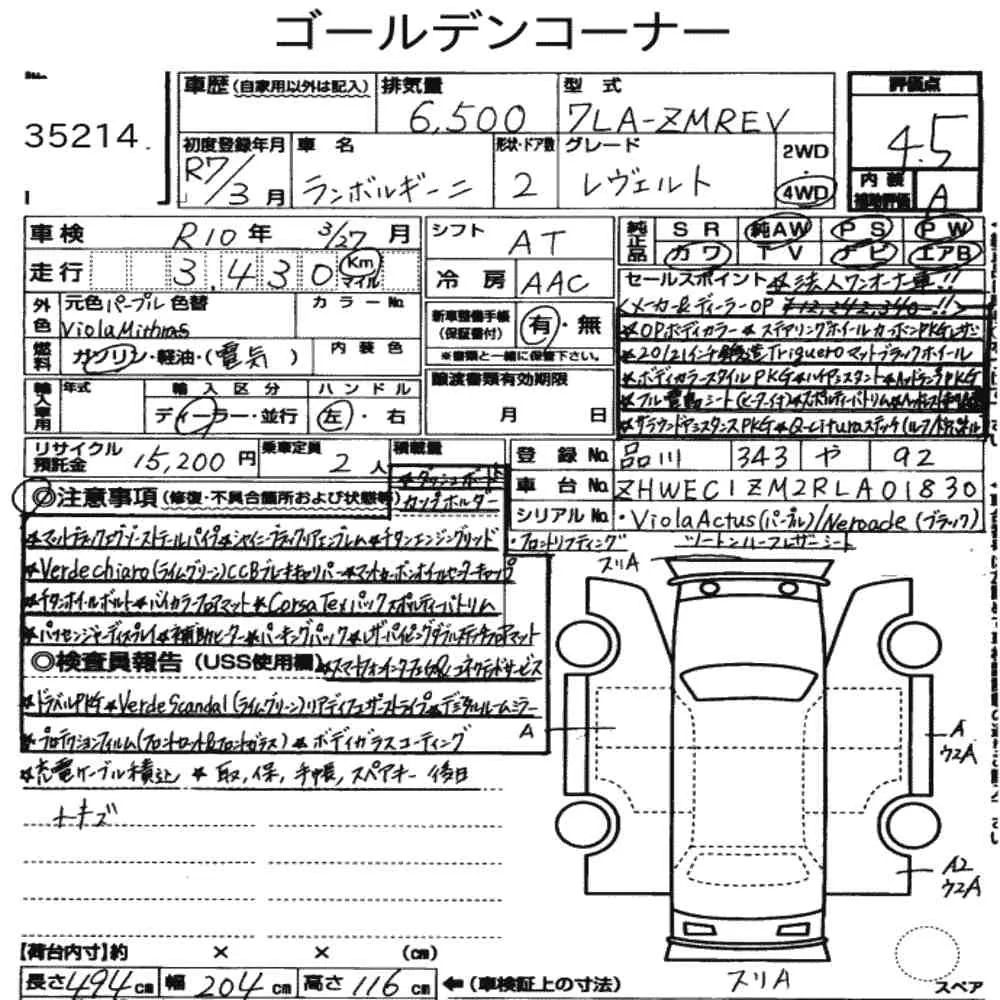 ゴールデンコーナー
35214
車歴(自家用以外は記入) 排気量 型式 評価点
6,500 7LA-ZMREV 4.5
初度登録年月 車名 形状・ドア数 グレード 2WD・4WD
R7/3月 ランボルギーニ 2 レヴェルト
内装補助評価 A
車検 R10年 3/27月 シフト AT
純正品 SR 純AW PS PW
カワ TV ナビ エアB
走行 3,430 Km マイル 冷房 AAC
セールスポイント ★法人ワンオーナー車!!
外色 元色 パープル 色替 カラーNo.
Viola Mithras
<メーカー&ディーラーOP ¥12,242,340-!!>
新車整備手帳(保証書付) 有・無
※書類と一緒に保管下さい。
★OPボディカラー★ステアリングホイールカーボンPKGレザー
燃料 ガソリン・軽油・(電気) 内装色
★20/21インチ鍛造Trigueroマットブラックホイール
輸入車用 年式 輸入区分 ハンドル
ディーラー・並行 左・右
譲渡書類有効期限
月 日
★ボディカラースタイルPKG★ハイアシスタント★ヘッドランプPKG
★サラウンドアシスタンスPKG★Q-Cituraステッチ
リサイクル預託金 15,200円 乗車定員 2人 積載量
登録No. 品川 343 や 92
車台No. ZHWEC1ZM2RLA01830
シリアルNo. ・ViolaActus(パープル)/Neroade(ブラック)
・フロントリフティング ツートンハーフレザーシート
◎注意事項(修復・不具合箇所および状態等)
★ダッシュボード
カップホルダー
★マットブラックエグゾーストテールパイプ★シャイニーブラックリアエンブレム★チタンエンジングリッド
★Verde chiaro(ライムグリーン)CCBブレーキキャリパー★マットカーボンオイルセンターキャップ
★チタンホイールボルト★バイカラーフロアマット★Corsa Texパックスポルティーバトリム
★パッセンジャーディスプレイ★補助ヒーター★パーキングパック★レザーパイピングダブルステッチフロアマット
◎検査員報告(USS使用欄) ★スマートフォンインターフェイス&コネクテッドサービス
★トラベルPKG★Verde Scandal(ライムグリーン)リアディフューザーストライプ★デジタルルームミラー
★プロテクションフィルム(フロントセット&フロントガラス)★ボディガラスコーティング
★充電ケーブル積込 ★取,保,手帳,スペアキー後日
トキズ
スリA
A
A
ウスA
A2
ウスA
スリA
【荷台内寸】約 × × (cm)
長さ 494cm 幅 204cm 高さ 116cm ←(車検証上の寸法)
スペア